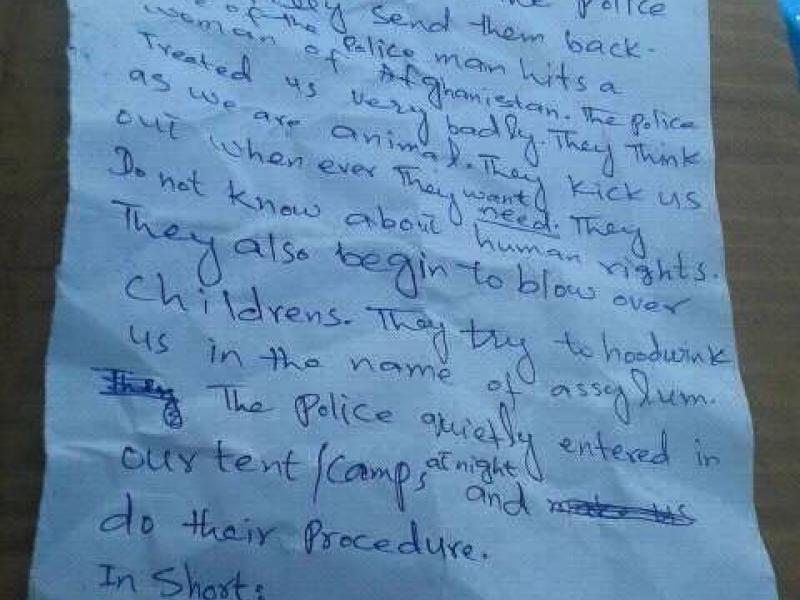 Police
send them back.
of the Police man hits a
woman of Afghaniestan. The Police
Treated us very badly. They Think
as we are animal. They kick us
out when ever They want need. They
Do not know about human rights.
They also begin to blow over
Childrens. They try to hoodwink
us in the name of assylum.
They The Police quietly entered in
our tent/Camps at night and make us
do their Procedure.
In Short: